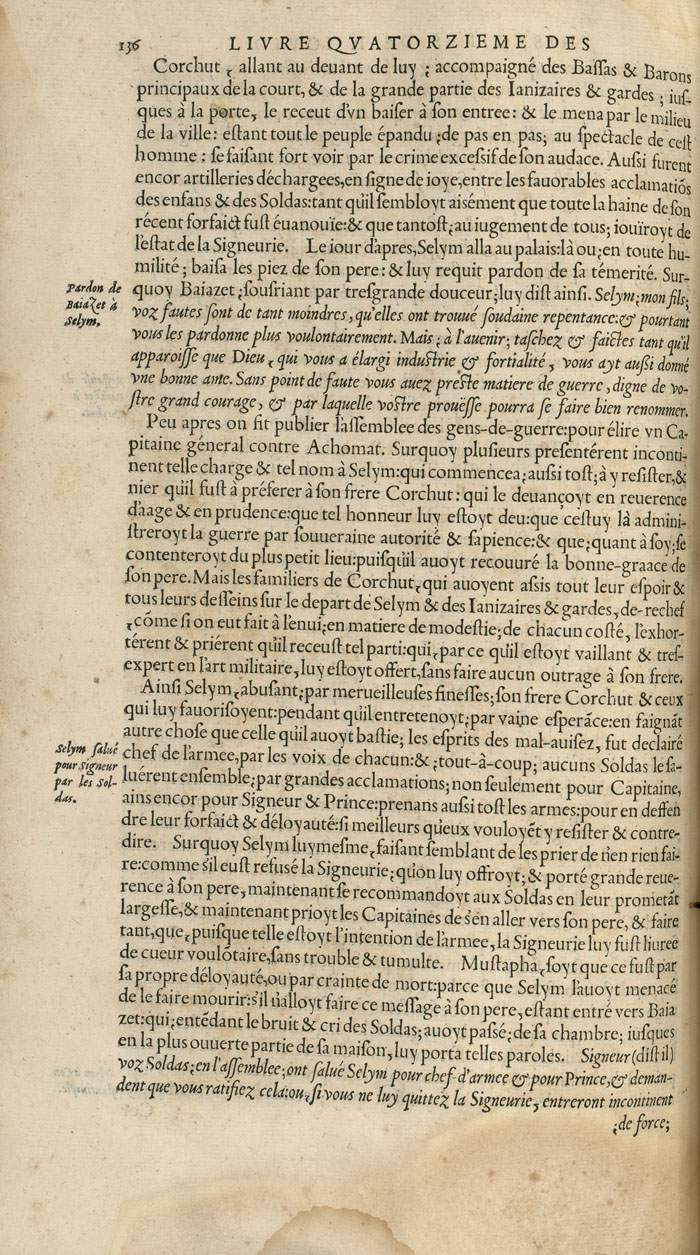 136 LIVRE QVATORZIEME DES
Corchut ꞔ allant au deuant de luy ; accompaigné des Baſſas & Barons
principaux de la court, & de la grande partie des Ianizaires & gardes ; iuſ-
ques à la porte, le receut d'vn baiſer à ſon entree: & le mena par le milieu
de la ville: eſtant tout le peuple épandu ;de pas en pas; au ſpectacle de ceſt
homme : ſe faiſant fort voir par le crime exceſsif de ſon audace. Auſsi furent
encor artilleries déchargees,en ſigne de ioye,entre les fauorables acclamatiõs
des enfans & des Soldas:tant qu'il ſembloyt aisément que toute la haine de ſon
récent forfaict fuſt éuanouïe:& que tantoſt;au iugement de tous; iouïroyt de
l'eſtat de la Signeurie. Le iour d'apres,Selym alla au palais:là ou;en toute hu-
milité; baiſa les piez de ſon pere: & luy requit pardon de ſa témerité. Sur-
Pardon de
Baiazet à
Selym.
quoy Baiazet ;ſouſriant par treſgrande douceur;luy diſt ainſi. Selym;mon fils;
voz fautes ſont de tant moindres, qu'elles ont trouué ſoudaine repentance:& pourtant
vous les pardonne plus voulontairement. Mais ; à l'auenir; taſchez & faictes tant qu'il
apparoiſſe que Dieu ꞔ qui vous a élargi induſtrie & fortialité, vous ayt auſsi donné
vne bonne ame. Sans point de faute vous auez preſte matiere de guerre, digne de vo-
ſtre grand courage, & par laquelle voſtre prouëſſe pourra ſe faire bien renommer.
Peu apres on fit publier l'aſſemblee des gens-de-guerre:pour élire vn Ca-
pitaine géneral contre Achomat. Surquoy pluſieurs preſentérent inconti-
nent telle charge & tel nom à Selym:qui commencea;auſsi toſt;à y reſiſter,&
nier qu'il fuſt à préferer à ſon frere Corchut: qui le deuançoyt en reuerence
d'aage & en prudence:que tel honneur luy eſtoyt deu:que ceſtuy là admini-
ſtreroyt la guerre par ſouueraine autorité & ſapience:& que;quant à ſoy;ſe
contenteroyt du plus petit lieu:puiſqu'il auoyt recouuré la bonne-graace de
ſon pere. Mais les familiers de Corchutꞔ qui auoyent aſsis tout leur eſpoir &
tous leurs deſſeins ſur le depart de Selym & des Ianizaires & gardes, de-rechef
ꞔcõme ſi on eut fait à l'enui;en matiere de modeſtie;de chacun coſté, l'exhor-
térent & priérent qu'il receuſt tel parti:quiꞔ par ce qu'il eſtoyt vaillant & treſ-
expert en l'art militaire, luy eſtoyt offert,ſans faire aucun outrage à ſon frere.
Ainſi Selym ꞔ abuſant;par merueilleuſes fineſſes;ſon frere Corchut & ceux
qui luy fauoriſoyent:pendant qu'il entretenoyt;par vaine eſperãce:en faignãt
autre choſe que celle qu'il auoyt baſtie; les eſprits des mal-auiſez, fut declairé
Selym ſalué
pour Signeur
par les Sol-
das.
chef de l'armee,par les voix de chacun:& ;tout-à-coup; aucuns Soldas le ſa-
luérent enſemble;par grandes acclamations; non ſeulement pour Capitaine,
ains encor pour Signeur & Prince:prenans auſsi toſt les armes:pour en deffen
dre leur forfaict & déloyauté:ſi meilleurs qu'eux vouloyẽt y reſiſter & contre-
dire. Surquoy Selym luymeſmeꞔ faiſant ſemblant de les prier de rien rien fai-
re:comme s'il euſt refusé la Signeurie;qu'on luy offroyt;& porté grande reue-
rence à ſon pere, maintenant ſe recommandoyt aux Soldas en leur prometãt
largeſſe,& maintenant prioyt les Capitaines de s'en aller vers ſon pere, & faire
tant,queꞔ puiſque telle eſtoyt l'intention de l'armee,la Signeurie luy fuſt liuree
de cueur voulõtaire,ſans trouble & tumulte. Muſtaphaꞔ ſoyt que ce fuſt par
ſa propre déloyauté,ou par crainte de mort:parce que Selym l'auoyt menacé
de le faire mourir:s'il n'alloyt faire ce meſſage à ſon pere, eſtant entré vers Baia
zet:qui;entẽdant le bruit & cri des Soldas;auoyt paſsé;de ſa chambre; iuſques
en la plus ouuerte partie de ſa maiſon, luy porta telles paroles. Signeur (diſt il)
voz Soldas;en l'aſſemblee;ont ſalué Selym pour chef-d'armee & pour Prince,& deman-
dent que vous ratifiez cela:ouꞔ ſi vous ne luy quittez la Signeurie, entreront incontinent
;de force;